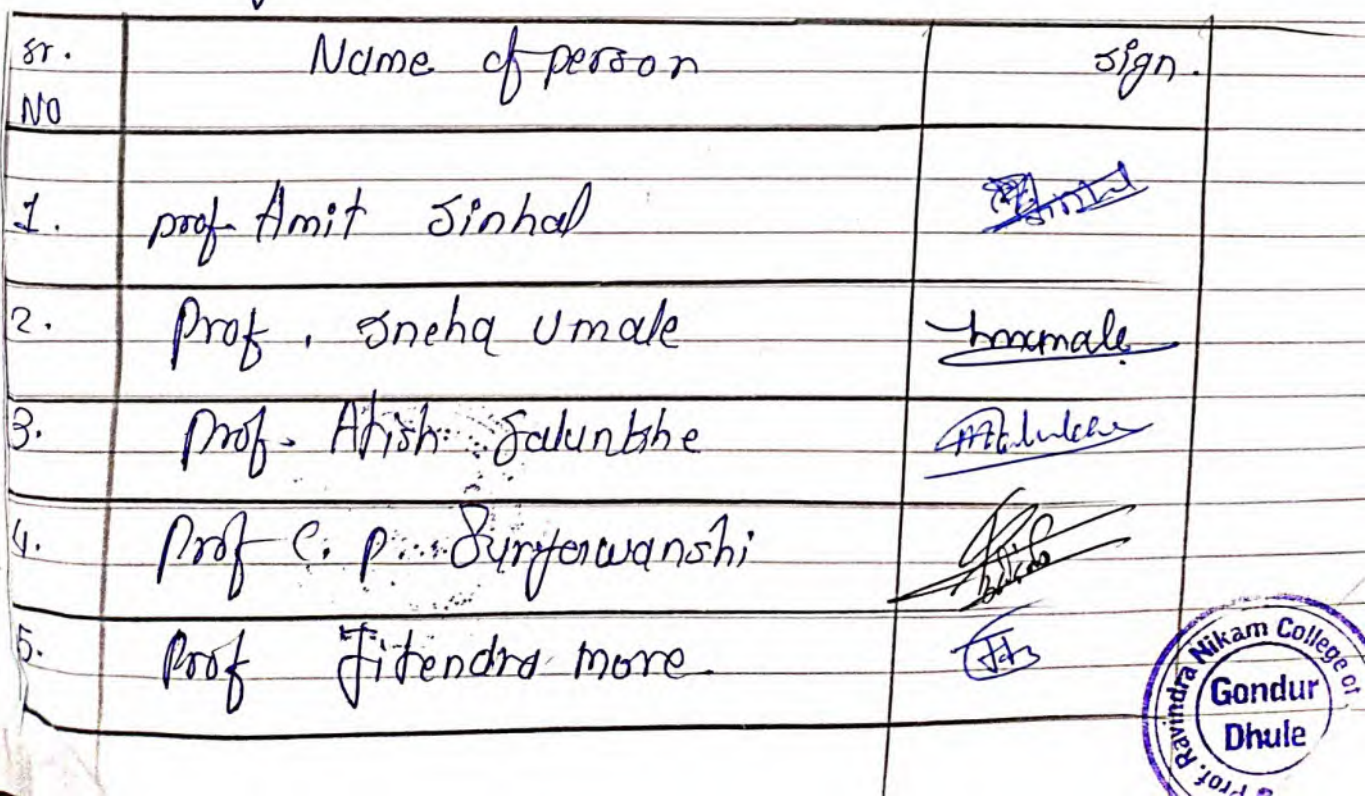 sr. Name of person sign.
NO
1. prof Amit Sinhal
2. Prof. Sneha Umale
3. Prof. Atish Salunkhe
4. Prof C. P. Suryawanshi
5. Prof Jitendra more.
Prof. Ravindra Nikam College of
Gondur
Dhule